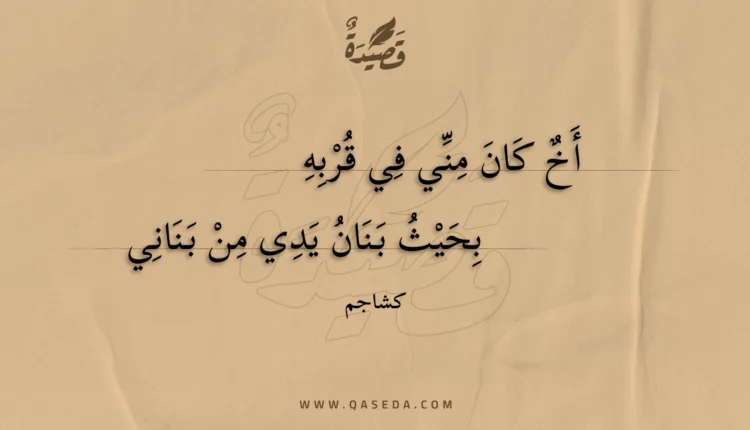 قَصِيْدَةٌ
أَخٌ كَانَ مِنِّي فِي قُرْبِهِ
بِحَيْثُ بَنَانُ يَدِي مِنْ بَنَانِي
كشاجم
WWW.QASEDA.COM